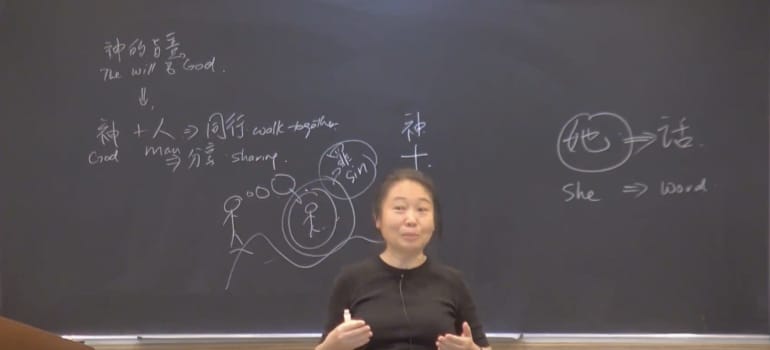 神的旨意
The will of God.
神 + 人 ⇒ 同行 walk together.
God man ⇒ 分享 sharing.
罪
sin
神
十
她 ⇒ 话.
she ⇒ word.